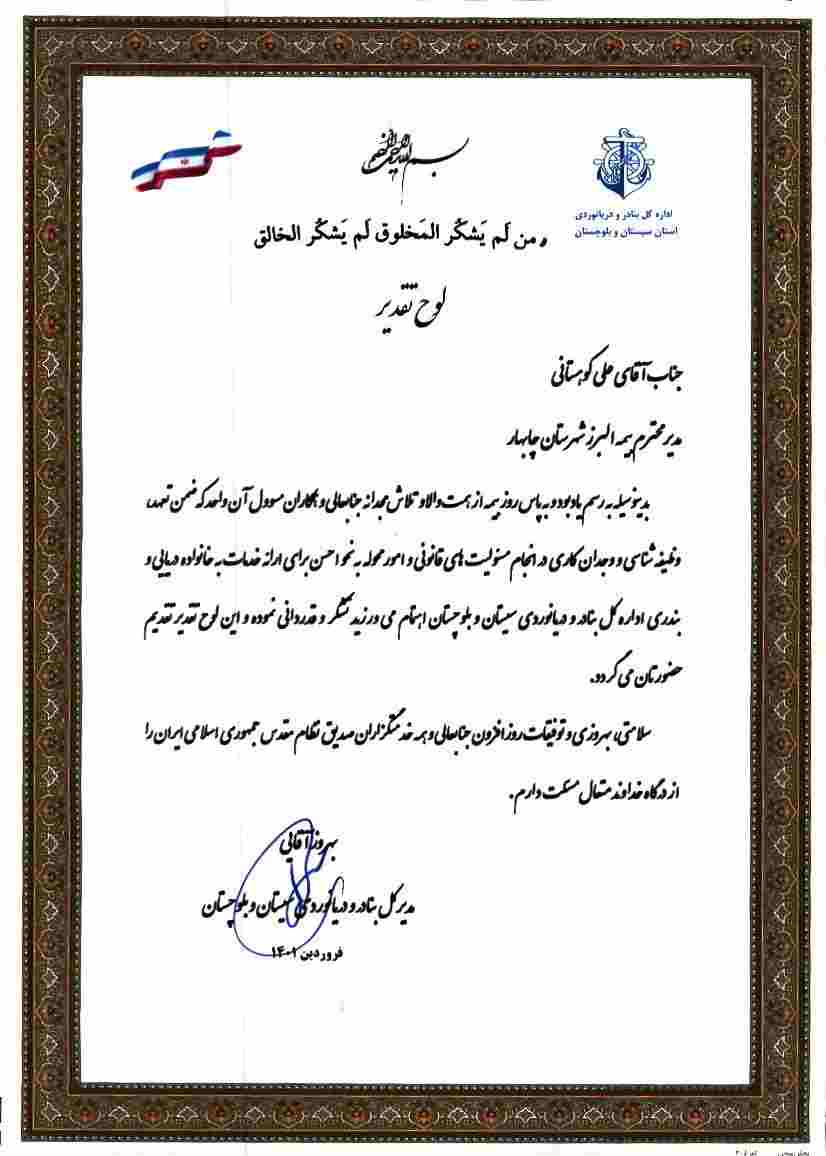 بسم الله الرحمن الرحیم
اداره کل بنادر و دریانوردی
استان سیستان و بلوچستان
من لَم یَشکُر المَخلوق لَم یَشکُر الخالق
لوح تقدیر
جناب آقای علی کوهستانی
مدیر محترم بیمه البرز شهرستان چابهار
بدینوسیله به رسم یادبود و به پاس روز بیمه از همت والا و تلاش مجدانه جنابعالی و همکاران مسوول آن واحد که ضمن تعهد،
وظیفه شناسی و وجدان کاری در انجام مسئولیت های قانونی و امور محوله به نحو احسن برای ارائه خدمات به خانواده دریایی و
بندری اداره کل بنادر و دریانوردی سیستان و بلوچستان اهتمام می ورزید تشکر و قدردانی نموده و این لوح تقدیر تقدیم
حضورتان می گردد.
سلامتی، بهروزی و توفیقات روز افزون جنابعالی و همه خدمتگزاران صدیق نظام مقدس جمهوری اسلامی ایران را
از درگاه خداوند متعال مسئلت دارم.
بهروز آقایی
مدیر کل بنادر و دریانوردی سیستان و بلوچستان
فروردین ۱۴۰۱